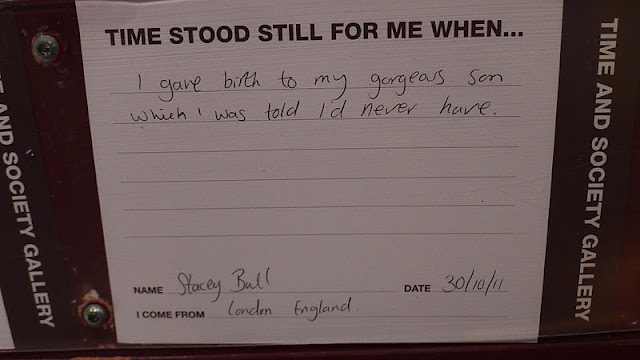 TIME STOOD STILL FOR ME WHEN...
I gave birth to my gorgeous son
which I was told I'd never have.
NAME Stacey Ball DATE 30/10/11
I COME FROM London England.
TIME AND SOCIETY GALLERY
AND SOCIETY GALLERY